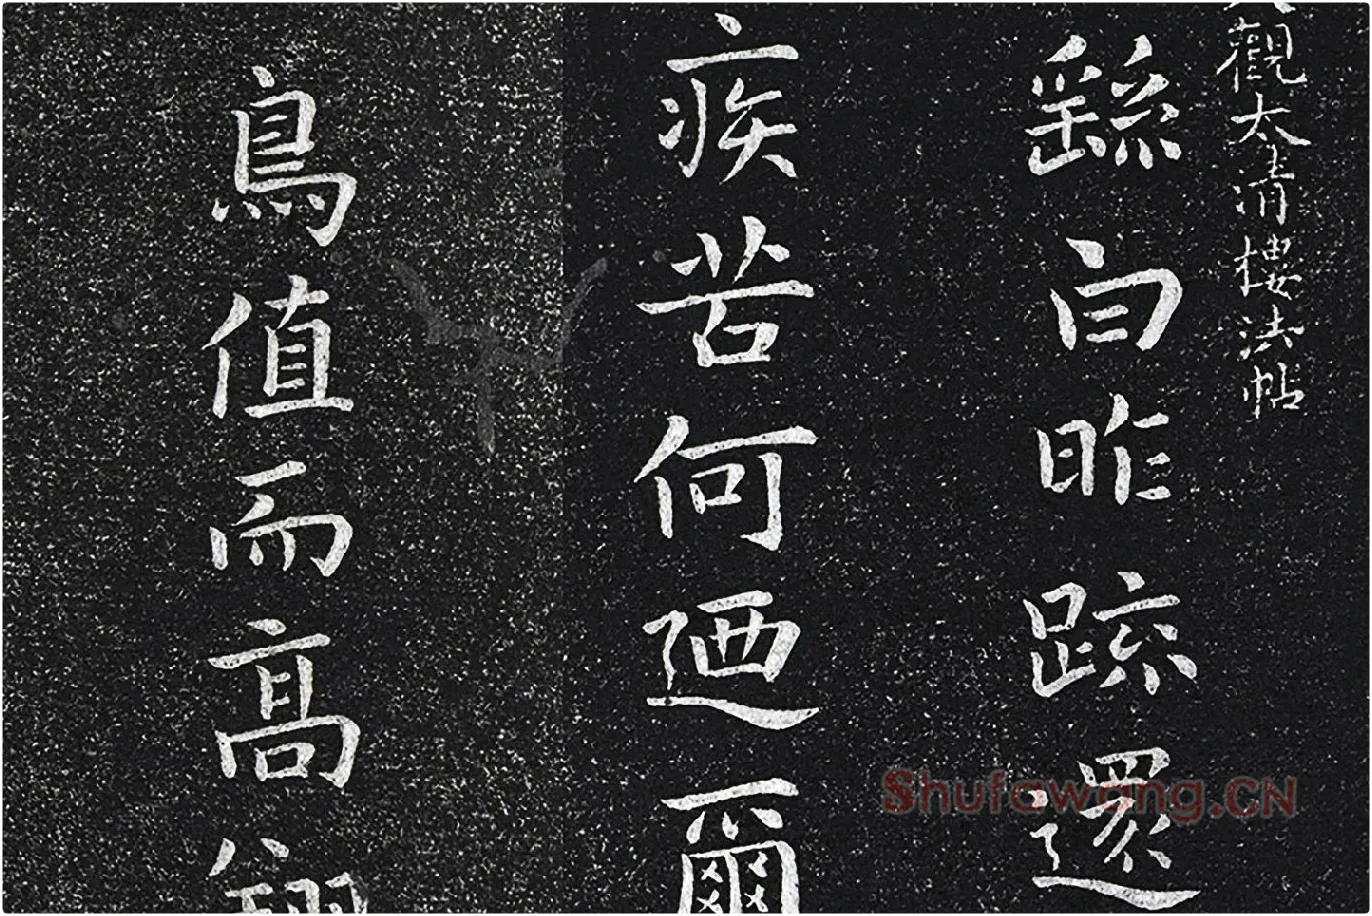 觀太清樓法帖
繇白昨䟽還
疾苦何廼爾
鳥值而高
Shufawang.CN